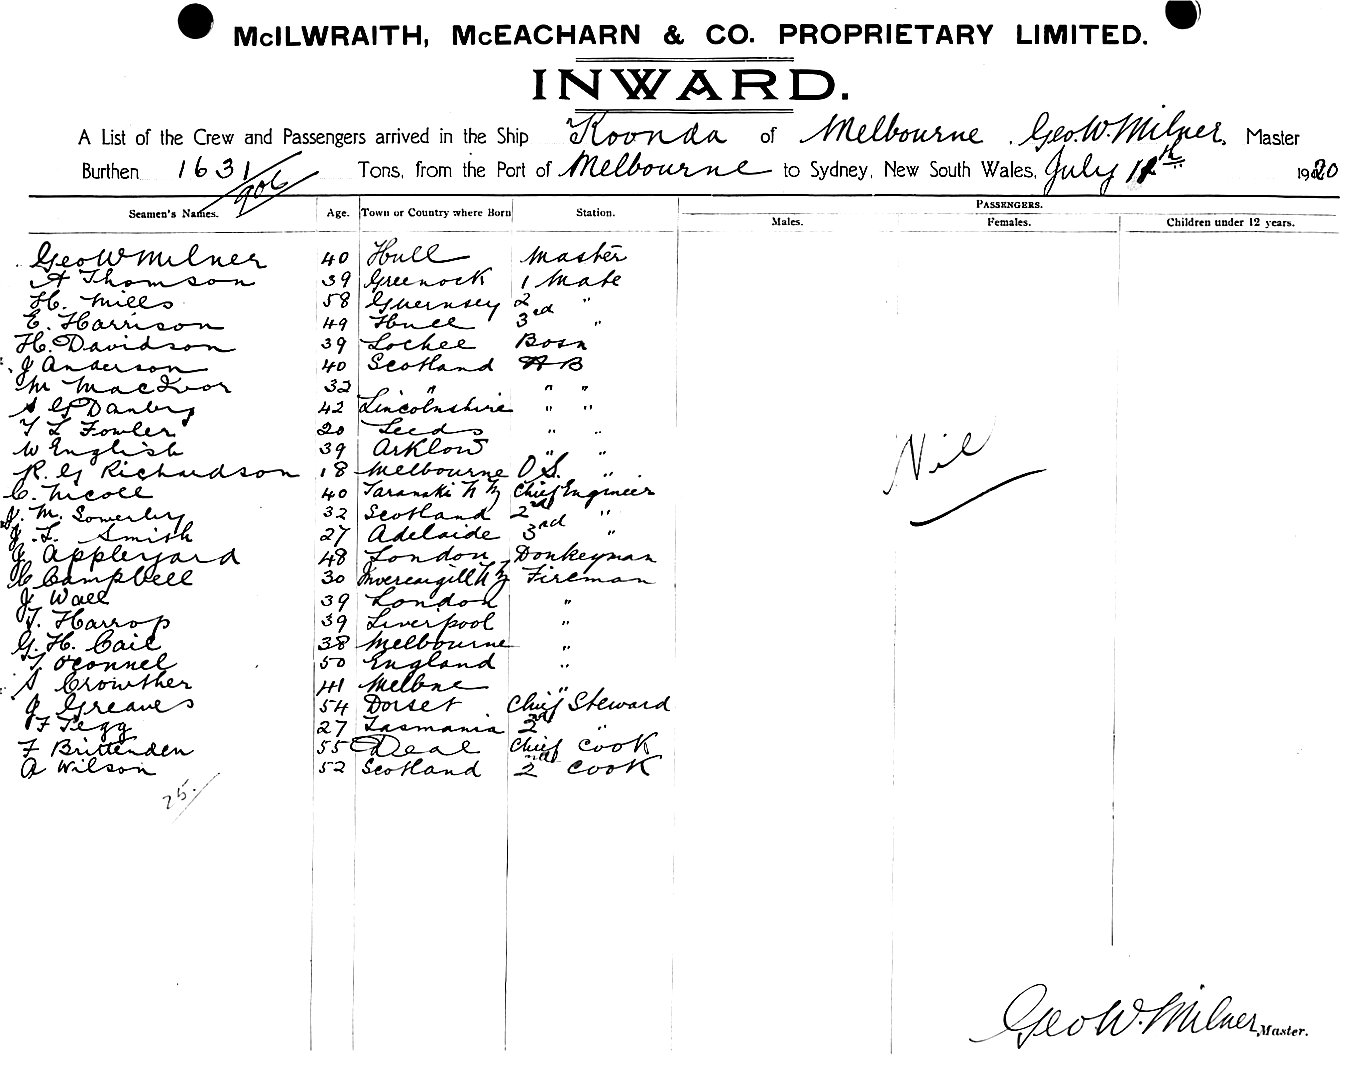 McILWRAITH, McEACHARN & CO. PROPRIETARY LIMITED.
INWARD.
A List of the Crew and Passengers arrived in the Ship Koonda of Melbourne. Geo W. Milner, Master
Burthen 1631/906 Tons, from the Port of Melbourne to Sydney, New South Wales, July th 1920
Seamen's Names. Age. Town or Country where Born Station. PASSENGERS.
Males. Females. Children under 12 years.
Geo W Milner 40 Hull Master
A Thomson 39 Greenock 1 Mate
H. Mills 58 Guernsey 2 "
E. Harrison 49 Hull 3rd "
H. Davidson 39 Lochee Bosn
J Anderson 40 Scotland AB
M MacIvor 32 " " "
A G Danby 42 Lincolnshire " "
T L Fowler 20 Leeds " "
W English 39 Arklow " "
R. G Richardson 18 Melbourne O.S. "
C. Nicoll 40 Taranaki N Z Chief Engineer
J. M. Sowerby 32 Scotland 2nd "
J. L. Smith 27 Adelaide 3rd "
J Appleyard 48 London Donkeyman
C Campbell 30 Invercargill N Z Fireman
J Wall 39 London "
T. Harrop 39 Liverpool "
G. H. Cail 38 Melbourne "
T O'Connel 50 England "
S Crowther 41 Melbne "
J Greaves 54 Dorset Chief Steward
F Tegg 27 Tasmania 2nd "
F Brittenden 55 Deal Chief Cook
A Wilson 52 Scotland 2nd Cook
25.
Nil
Geo W. Milner, Master.